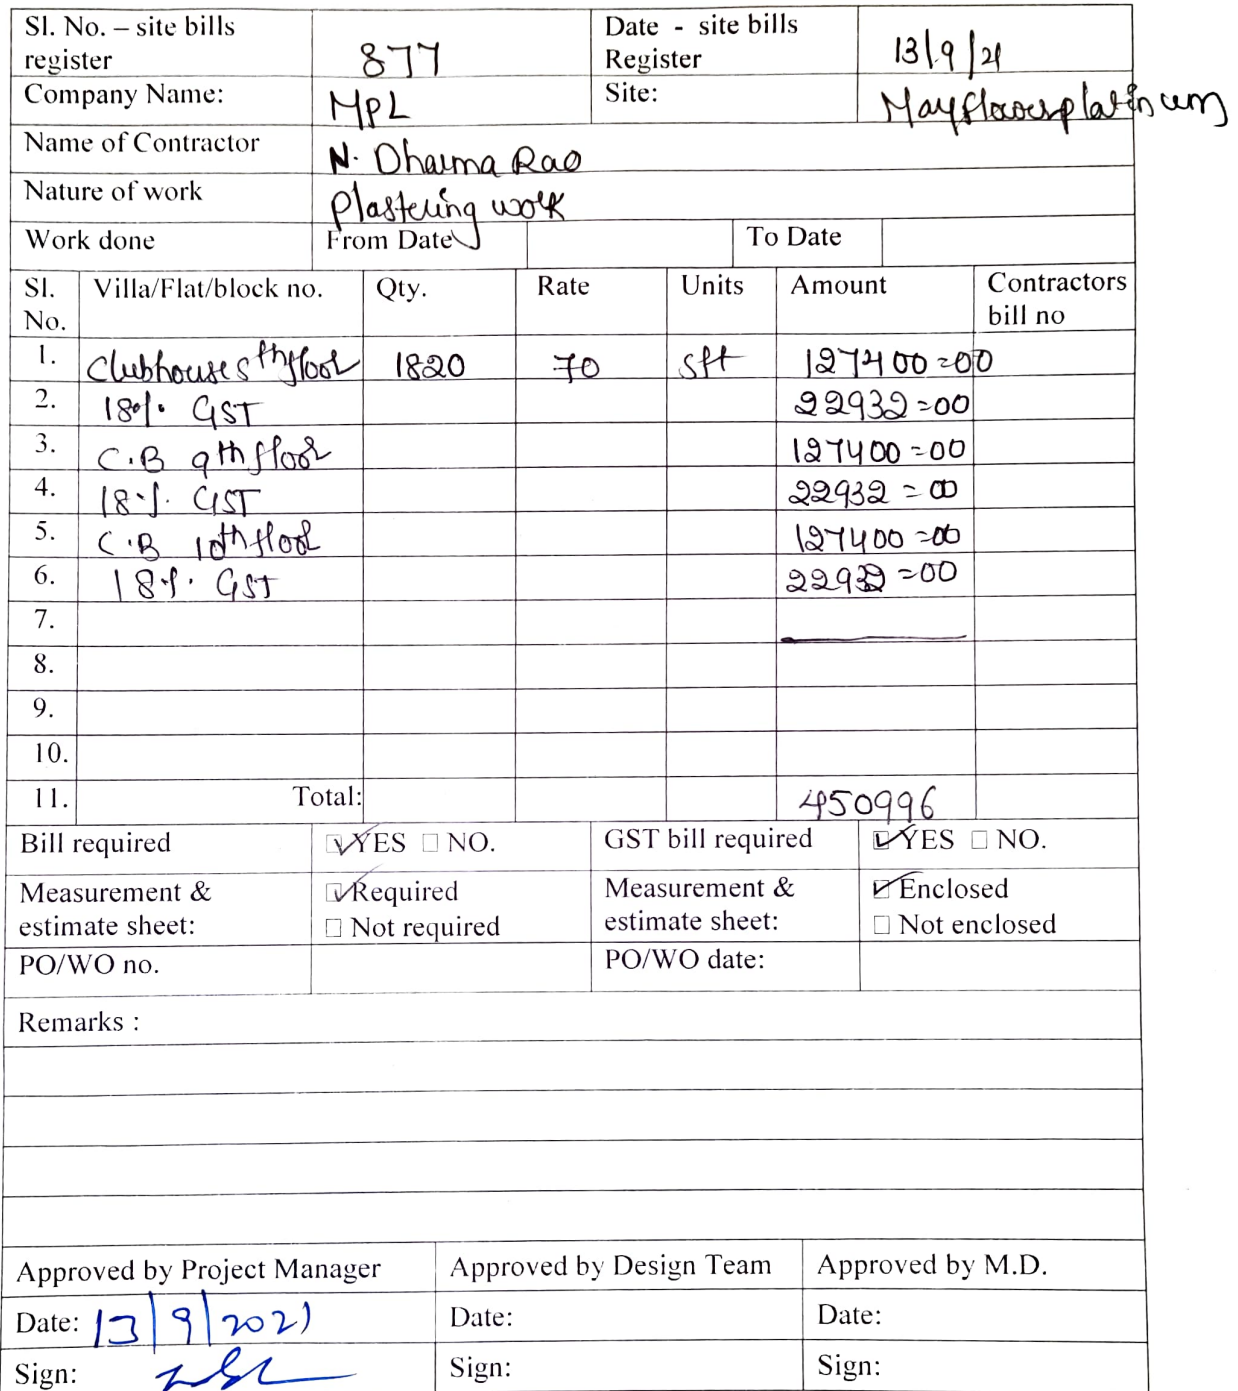 Sl. No. – site bills register 877 Date - site bills Register 13/9/21
Company Name: MPL Site: Mayflowerplatinum
Name of Contractor N. Dharma Rao
Nature of work Plastering work
Work done From Date To Date
Sl. No. Villa/Flat/block no. Qty. Rate Units Amount Contractors bill no
1. Clubhouse 5th floor 1820 70 sft 127400=00
2. 18% GST 22932=00
3. C.B 9th floor 127400=00
4. 18%. GST 22932=00
5. C.B 10th floor 127400=00
6. 18%. GST 22932=00
7.
8.
9.
10.
11. Total: 450996
Bill required YES NO. GST bill required YES NO.
Measurement & estimate sheet: Required Measurement & estimate sheet: Enclosed
Not required Not enclosed
PO/WO no. PO/WO date:
Remarks :
Approved by Project Manager Approved by Design Team Approved by M.D.
Date: 13/9/2021 Date: Date:
Sign: Sign: Sign: